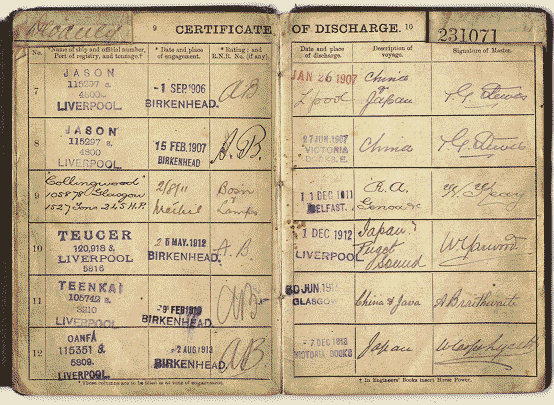 9 CERTIFICATE OF DISCHARGE. 10
231071
No.
Name of ship and official number, Port of registry, and tonnage.†
* Date and place of engagement.
* Rating; and R.N.R. No. (if any).
Date and place of discharge.
Description of voyage.
Signature of Master.
7
JASON
115297 s.
4800
LIVERPOOL
-1 SEP 1906
BIRKENHEAD.
AB
JAN 26 1907
L'pool
China & Japan
8
JASON
115297 s.
4800
LIVERPOOL
15 FEB. 1907
BIRKENHEAD
A.B.
27 JUN. 1907
VICTORIA DOCKS. E.
China
9
"Collingwood"
Glasgow
1527 Tons 245 H.P.
2/8/11
Bosn
Lamps
11 DEC 1911
BELFAST.
R.A.
Genoa &c
10
TEUCER
120,918 s.
LIVERPOOL
5816
25 MAY. 1912
BIRKENHEAD.
A.B.
1 DEC 1912
LIVERPOOL
Japan &
Puget
Sound
11
TEENKAI
105742 s.
3210
LIVERPOOL
FEB 1913
BIRKENHEAD.
AB
30 JUN. 191
GLASGOW
China & Java
A Braithwaite
12
OANFA
115351 s.
5809.
LIVERPOOL.
2 AUG 1913
BIRKENHEAD.
AB
-7 DEC 1913
VICTORIA DOCKS
Japan
* These columns are to be filled in at time of engagement.
† In Engineers' Books insert Horse Power.